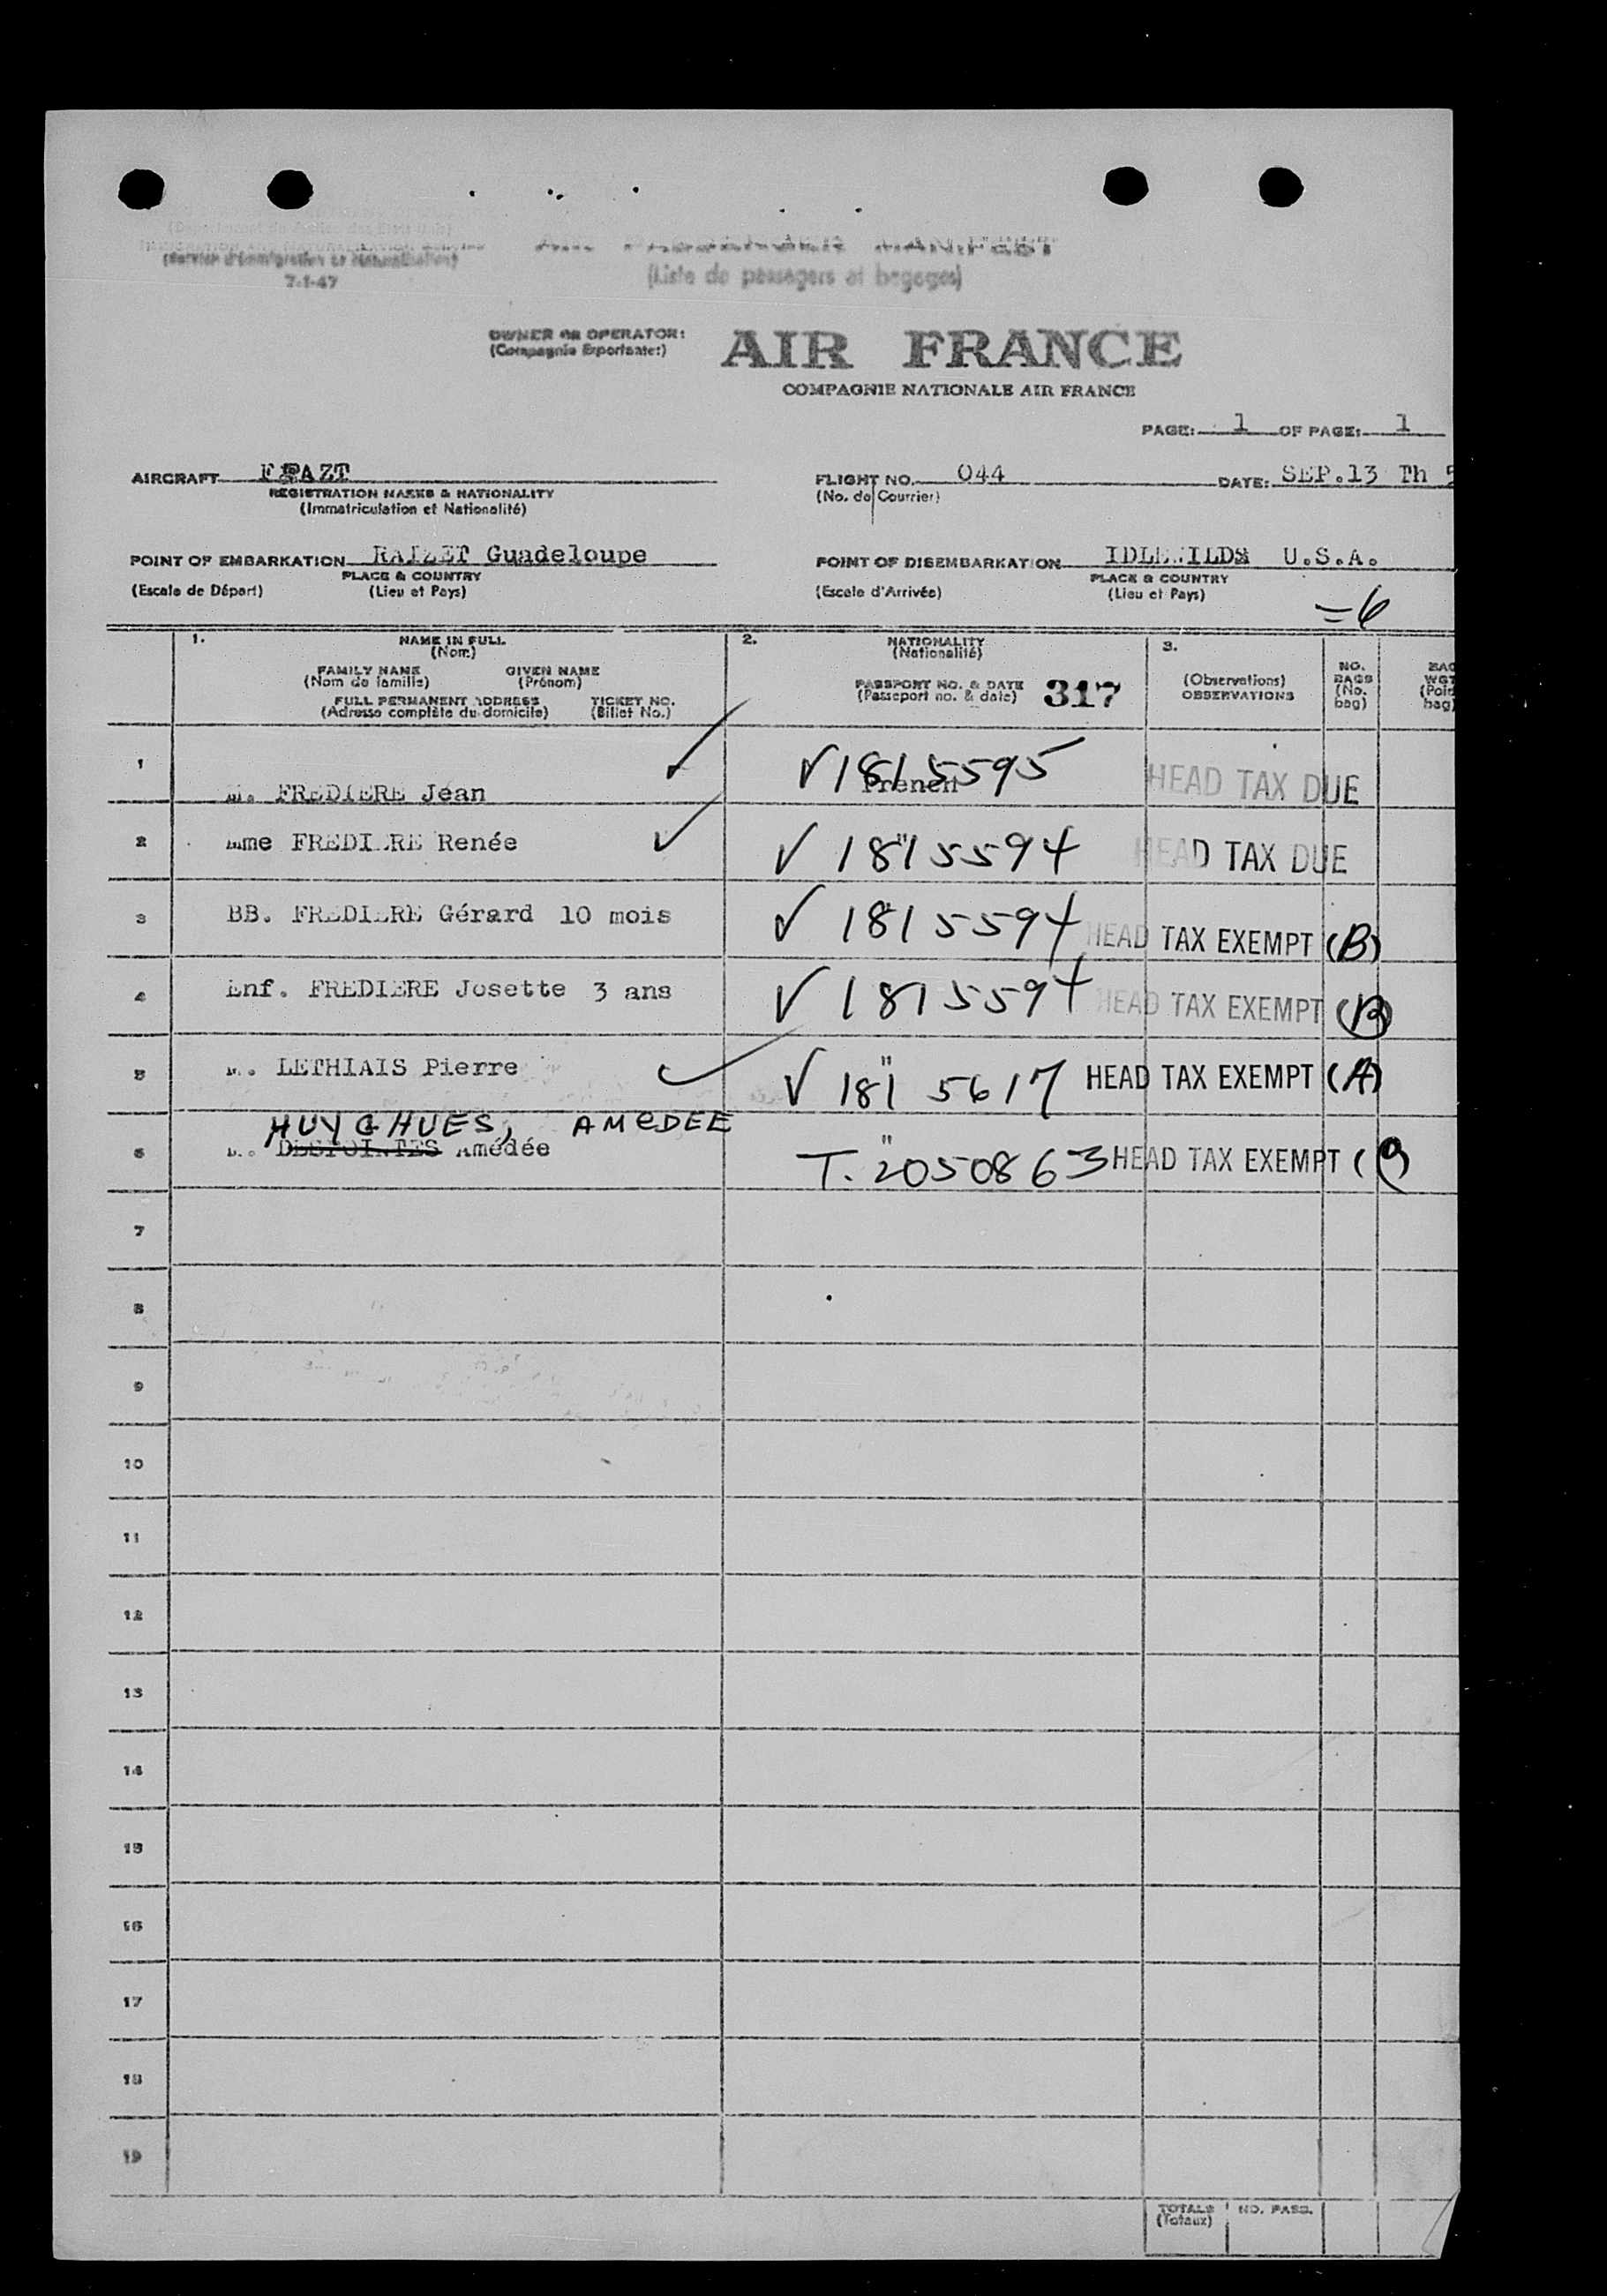 (Service d'Immigration et Naturalisation)
7-1-47
AIR PASSENGER MANIFEST
(Liste de passagers et bagages)
OWNER OR OPERATOR:
(Compagnie Exportante:)
AIR FRANCE
COMPAGNIE NATIONALE AIR FRANCE
PAGE: 1 OF PAGE: 1
AIRCRAFT
REGISTRATION MARKS & NATIONALITY
(Immatriculation et Nationalité)
FLIGHT NO. 044
(No. de Courrier)
DATE: SEP.13 Th
POINT OF EMBARKATION RAIZET Guadeloupe
PLACE & COUNTRY
(Escale de Départ)
(Lieu et Pays)
POINT OF DISEMBARKATION IDLEWILD U.S.A.
PLACE & COUNTRY
(Escale d'Arrivée)
(Lieu et Pays)
=6
1.
NAME IN FULL
(Nom)
FAMILY NAME GIVEN NAME
(Nom de famille) (Prénom)
FULL PERMANENT ADDRESS TICKET NO.
(Adresse complète du domicile) (Billet No.)
2.
NATIONALITY
(Nationalité)
PASSPORT NO. & DATE
(Passeport no. & date)
317
3.
(Observations)
OBSERVATIONS
NO.
BAGS
(No.
bag)
BAG
WGT
(Poid
bag)
1 M. FREDIERE Jean French ✓1815595 HEAD TAX DUE
2 Mme FREDIERE Renée " ✓ 1815594 HEAD TAX DUE
3 BB. FREDIERE Gérard 10 mois " ✓ 1815594 HEAD TAX EXEMPT (B)
4 Enf. FREDIERE Josette 3 ans ✓ 1815594 HEAD TAX EXEMPT (B)
5 M. LETHIAIS Pierre " ✓ 1815617 HEAD TAX EXEMPT (A)
HUYGHUES, AMEDEE
6 M. DESPOINTES Amédée " T. 2050863 HEAD TAX EXEMPT
7
8
9
10
11
12
13
14
15
16
17
18
19
TOTALS
(Totaux)
NO. PASS.